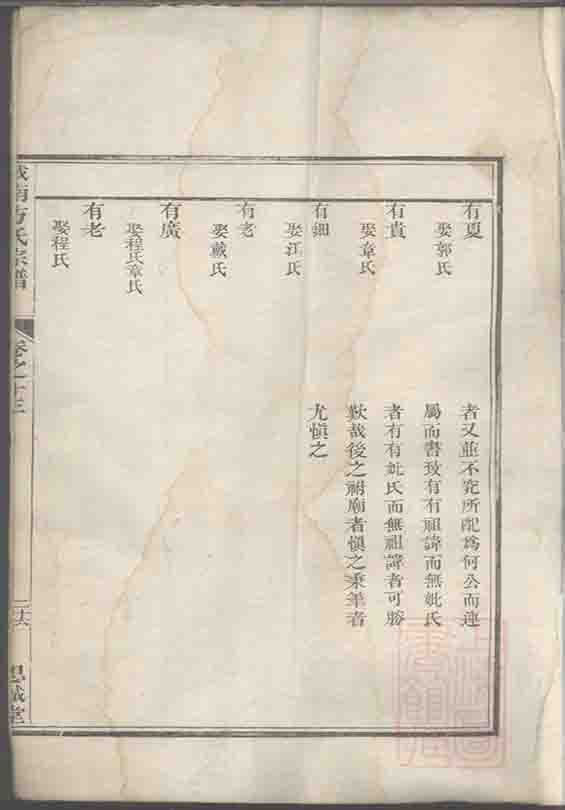 有夏
娶郭氏
有貴
娶章氏
有細
娶江氏
有老
娶戴氏
有廣
娶程氏章氏
有老
娶程氏
者又並不究所配爲何公而連
屬而書致有有祖諱而無妣氏
者有有妣氏而無祖諱者可勝
歎哉後之祔廟者愼之秉筆者
尤愼之
城南方氏宗譜
卷之十三
二十六
思誠堂